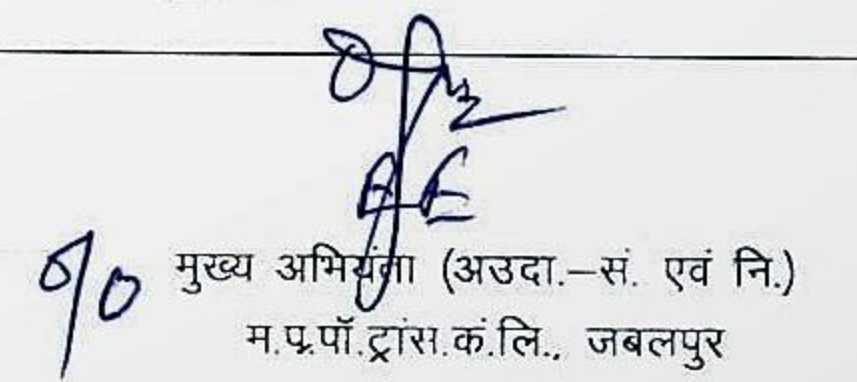 AE
O/O मुख्य अभियंता (अउदा.–सं. एवं नि.)
म.प्र.पॉ.ट्रांस.कं.लि., जबलपुर